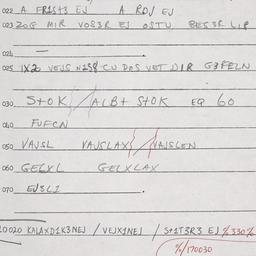 022 A FR1St3 EJ A RDJ EJ
023 ZOG MIR VOS3R EJ OSTU. BES3R LIP
024 —
025 1X20 VEJS N1S8 CU DOS VET DIR G3FELN
030 StOK / ALBt StOK EQ 60
040 FUFCN
050 VAJSL VAJSLAX / VAJSLEN
060 GELXL GELXLAX
070 EJ3L1
0020 KALAXD1K3NEJ / VEJX1NEJ / St1T3R3 EJ %330%
%/170030